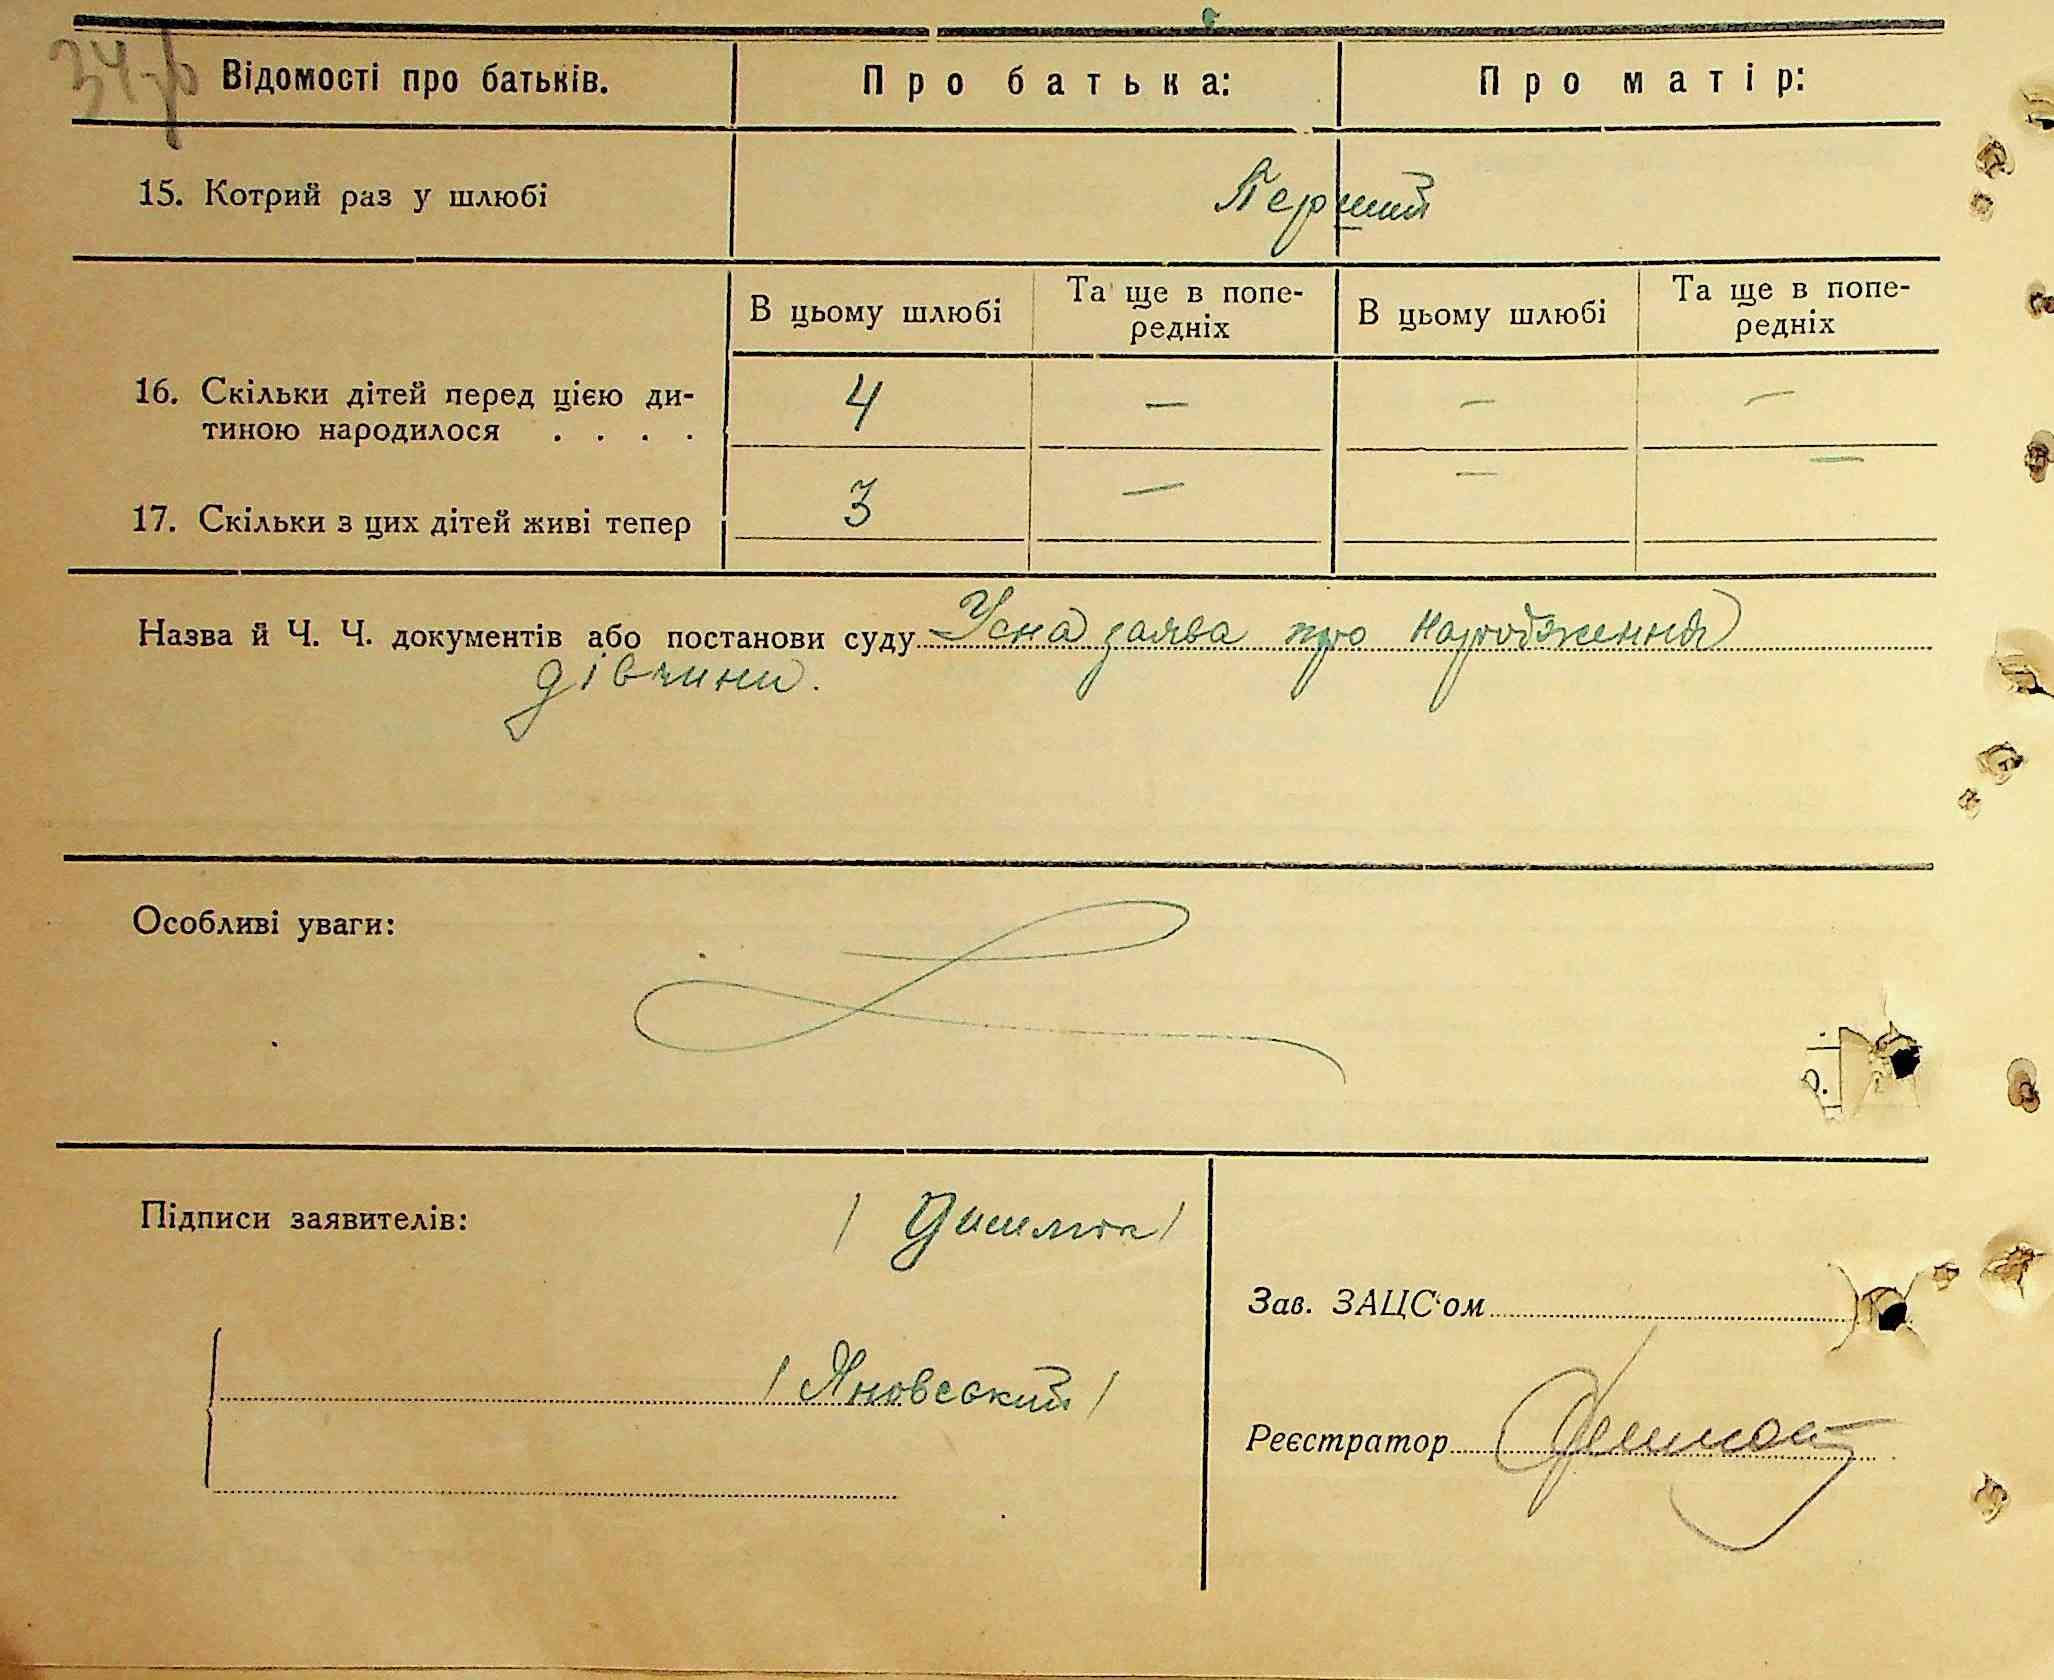 Відомості про батьків.
Про батька:
Про матір:
15. Котрий раз у шлюбі
Перший
В цьому шлюбі
Та ще в попе-
редніх
В цьому шлюбі
Та ще в попе-
редніх
16. Скільки дітей перед цією ди-
тиною народилося . . . .
4 — — —
17. Скільки з цих дітей живі тепер
3 — — —
Назва й Ч. Ч. документів або постанови суду Усна заява про народження
дівчини.
Особливі уваги:
Підписи заявителів:
/Яновський/
Зав. ЗАЦС'ом
Реєстратор